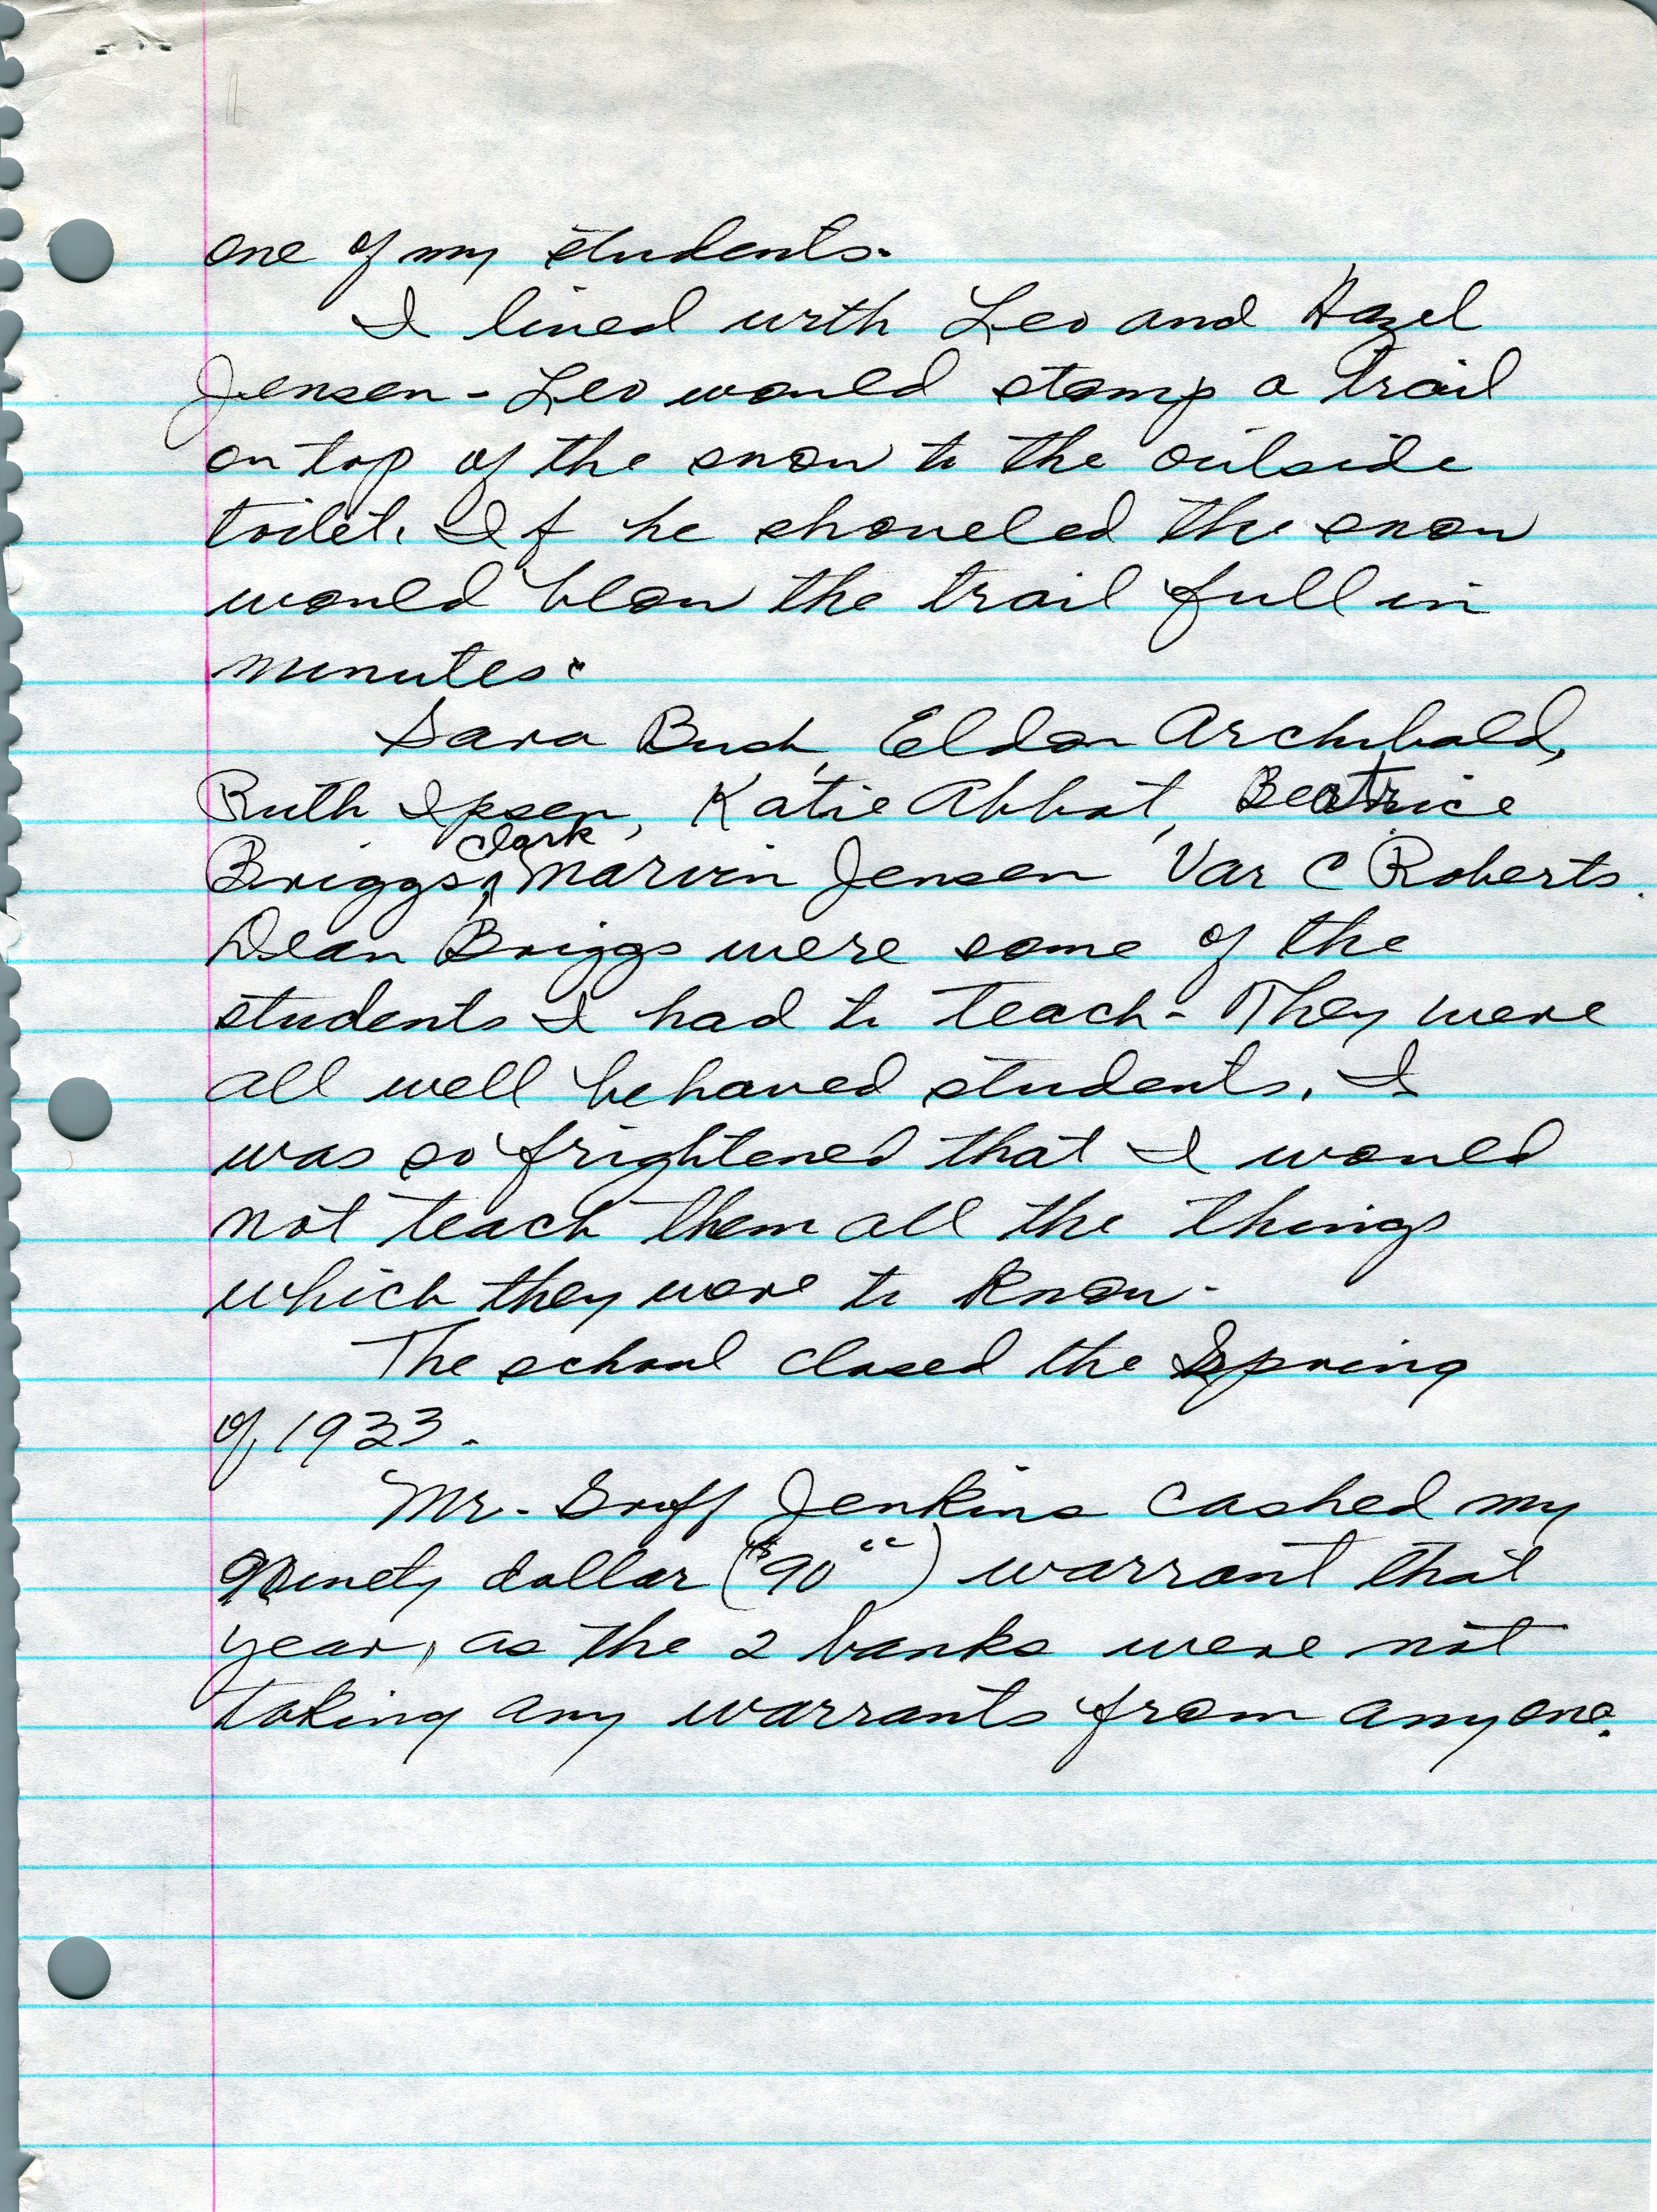 one of my students.
I lived with Leo and Hazel
Jensen - Leo would stomp a trail
on top of the snow to the outside
toilet. If he shoveled the snow
would blow the trail full in
minutes.
Sara Bush, Eldon Archibald,
Ruth Ipsen, Katie Abbot, Beatrice
Clark
Briggs, Marvin Jensen Var C Roberts.
Dean Briggs were some of the
students I had to teach - They were
all well behaved students. I
was so frightened that I would
not teach them all the things
which they were to know.
The school closed the Spring
of 1933.
Mr. Groff Jenkins cashed my
Ninety dollar ($90 cc) warrant that
year, as the 2 banks were not
taking any warrants from anyone.